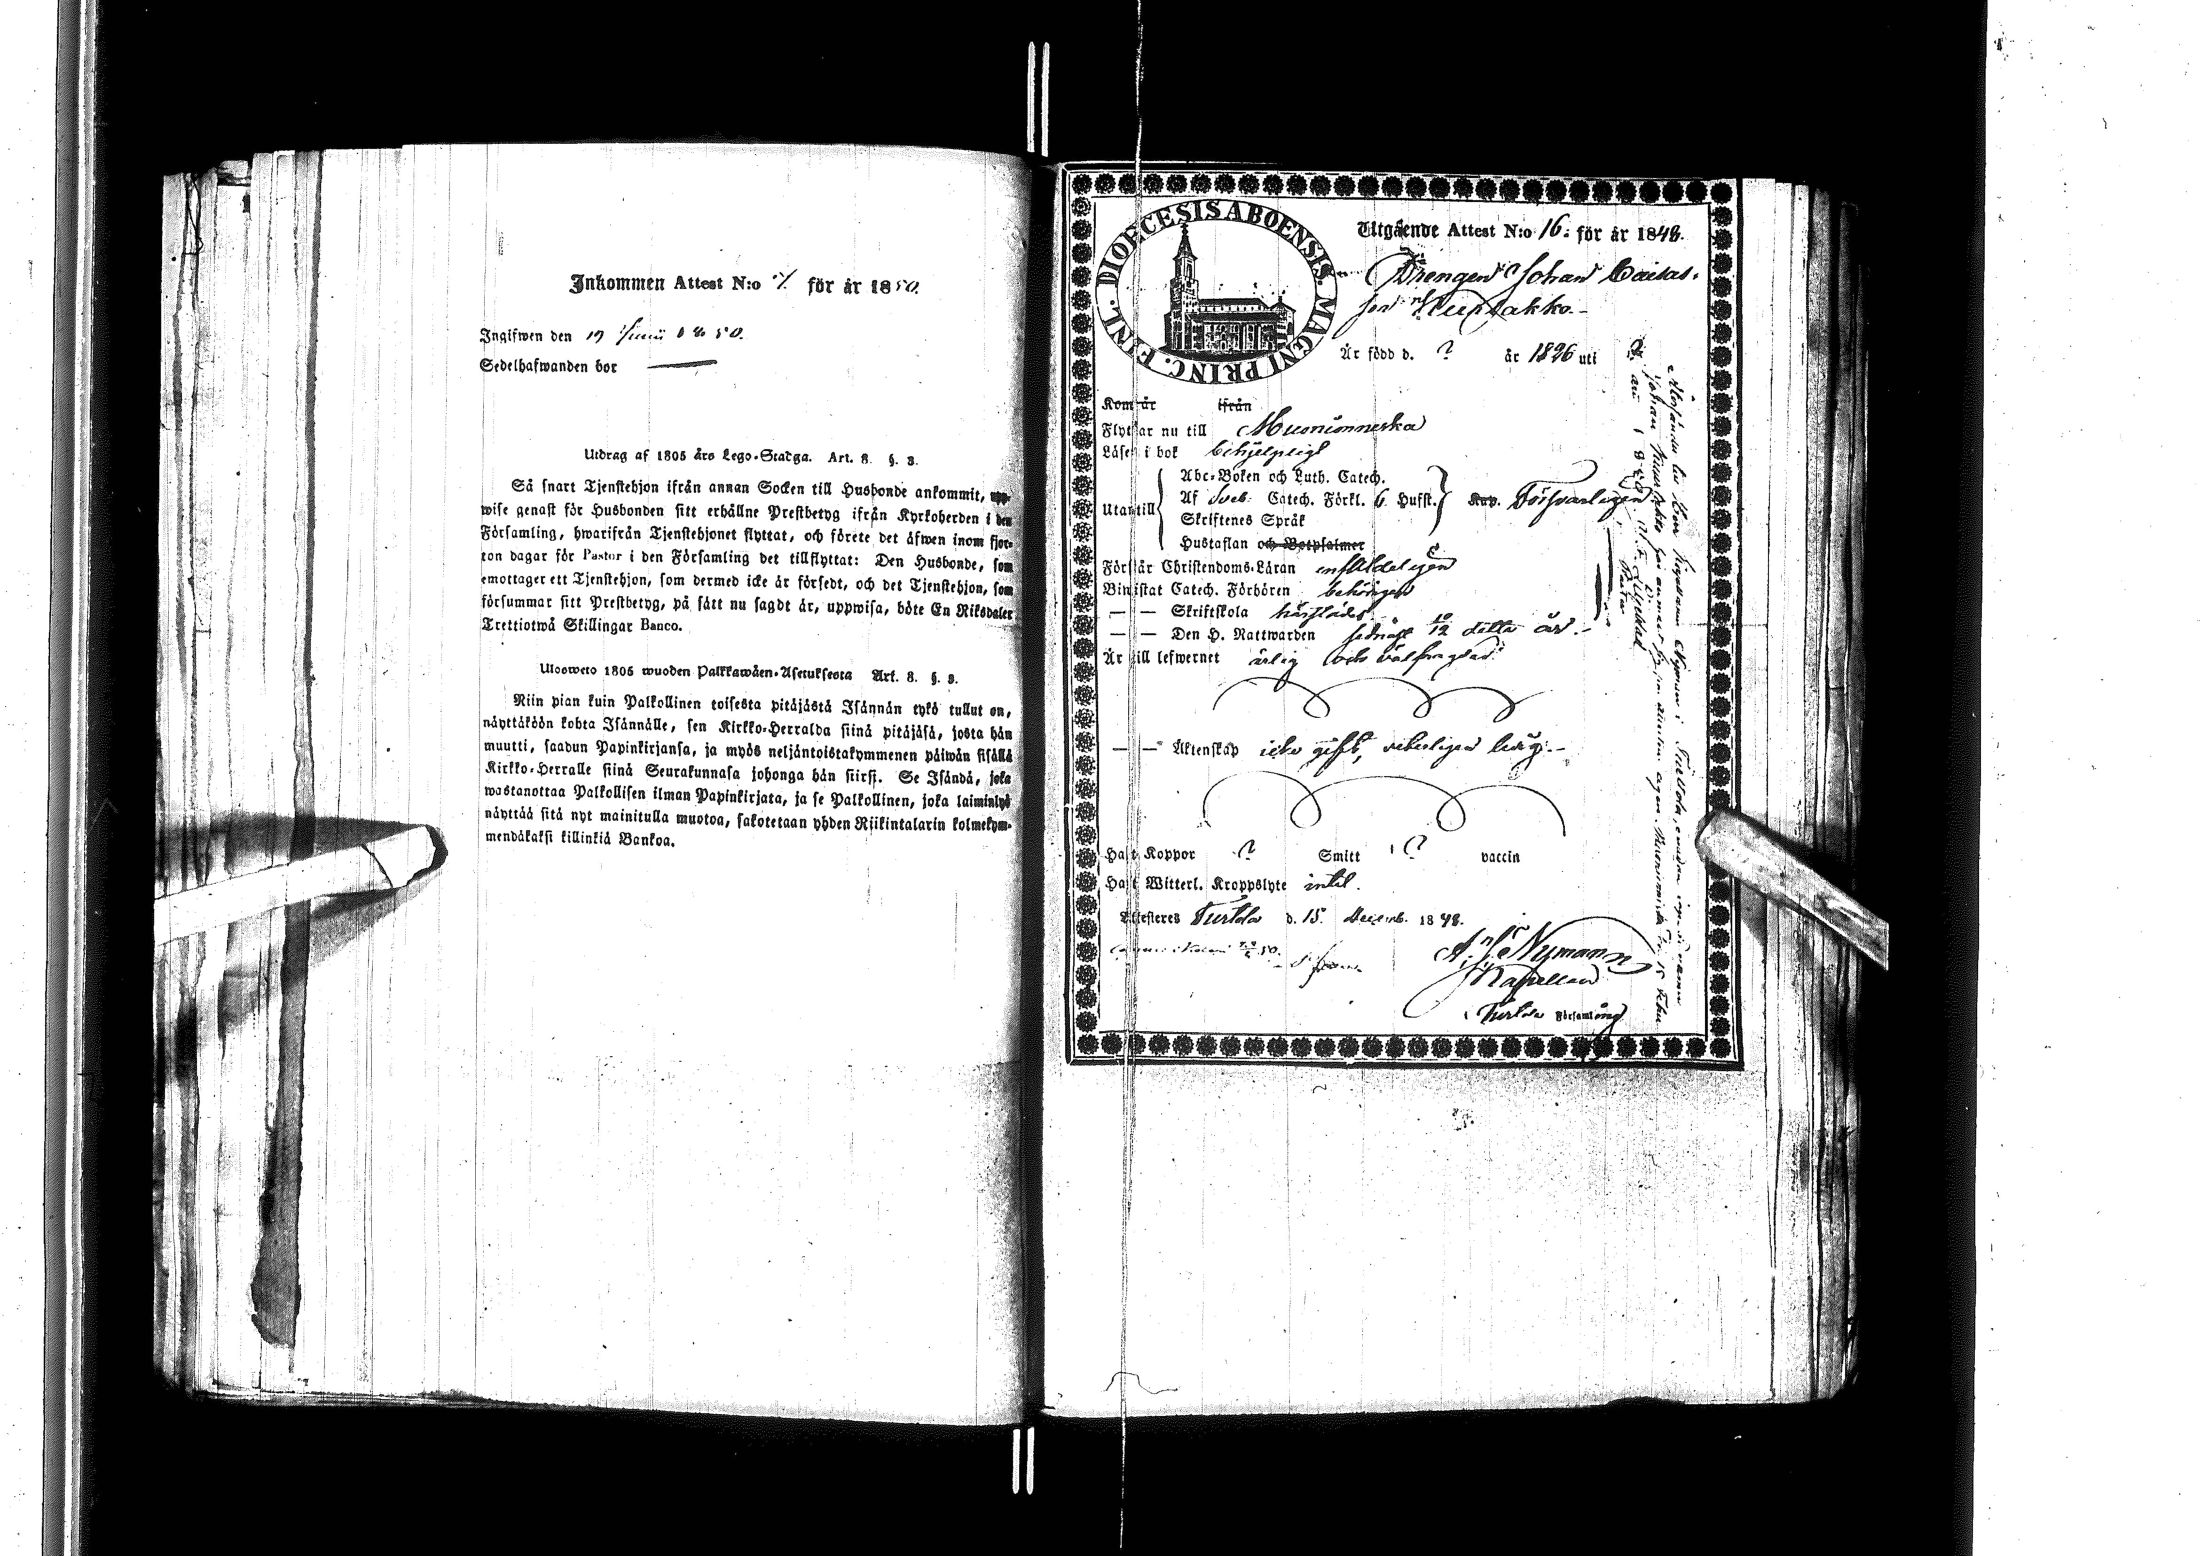 Inkommen Attest N:o för år 1850.
Ingifwen den 17 Junii 1850.
Sedelhafwanden bor
Utdrag af 1805 års Lego-Stadga. Art. 8. §. 3.
Så snart Tjenstehjon ifrån annan Socken till Husbonde ankommit, upp-
wise genast för Husbonden sitt erhållne Prestbetyg ifrån Kyrkoherden i den
Församling, hwarifrån Tjenstehjonet flyttat, och förete det äfwen inom fjor-
ton dagar för Pastor i den Församling det tillflyttat: Den Husbonde, som
emottager ett Tjenstehjon, som dermed icke är försedt, och det Tjenstehjon, som
försummar sitt Prestbetyg, på sätt nu sagdt är, uppwisa, böte En Riksdaler
Trettiotwå Skillingar Banco.
Ulosweto 1805 wuoden Palkkawäen-Asetuksesta Art. 8. §. 3.
Niin pian kuin Palkollinen toisesta pitäjästä Isännän tykö tullut on,
näyttäköön kohta Isännälle, sen Kirkko-Herralda siinä pitäjäsä, josta hän
muutti, saadun Papinkirjansa, ja myös neljäntoistakymmenen päiwän sisällä
Kirkko-Herralle siinä Seurakunnasa johonga hän siirsi. Se Isändä, joka
wastanottaa Palkollisen ilman Papinkirjata, ja se Palkollinen, joka laiminlyö
näyttää sitä nyt mainitulla muotoa, sakotetaan yhden Riikintalarin kolmekym-
mendäkaksi killinkiä Bankoa.
DIOECESIS ABOENSIS. MAGNI PRINC. FINL.
Utgående Attest N:o 16: för år 1848.
Drengen Johan Caisas-
son Kurtakko.-
Är född d. ? år 1826 uti
Kom år ifrån
Flyttar nu till Muonionniska
Läser i bok behjelpligt
Abc-Boken och Luth. Catech.
Utantill Af Sveb. Catech. Förkl. 6 Hufst. Kap. Försvarligen
Skriftenes Språk
Hustaflan och Botpsalmer
Förstår Christendoms-Läran enfaldeligen
Biwistat Catech. Förhören behörigen
— — Skriftskola härstädes
— — Den H. Nattwarden sednast 10/12 detta år.-
Är till lefwernet ärlig och välfrägdad
— — Äktenskap icke gift, ledig.-
Haft Koppor ? Smitt ? vaccin
Haft Witterl. Kroppslyte intet.
Attesteres Turtola d. 15 Decemb. 1848.
Nymann
Kapellan
i Turtola Församling